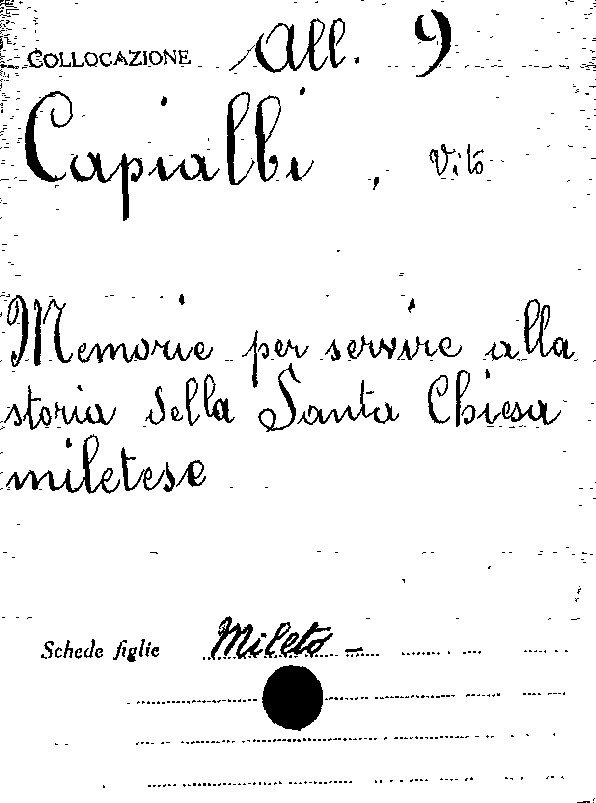 COLLOCAZIONE All. 9
Capialbi, Vito
Memorie per servire alla
storia della Santa Chiesa
miletese
Schede figlie Mileto -